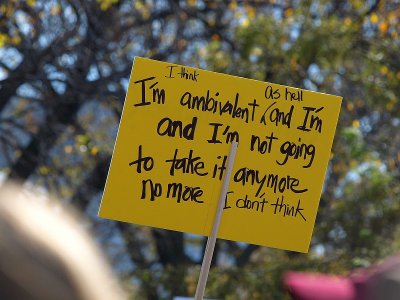 I think
as hell
I'm ambivalent ^ and I'm
and I'm not going
to take it anymore
no more I don't think